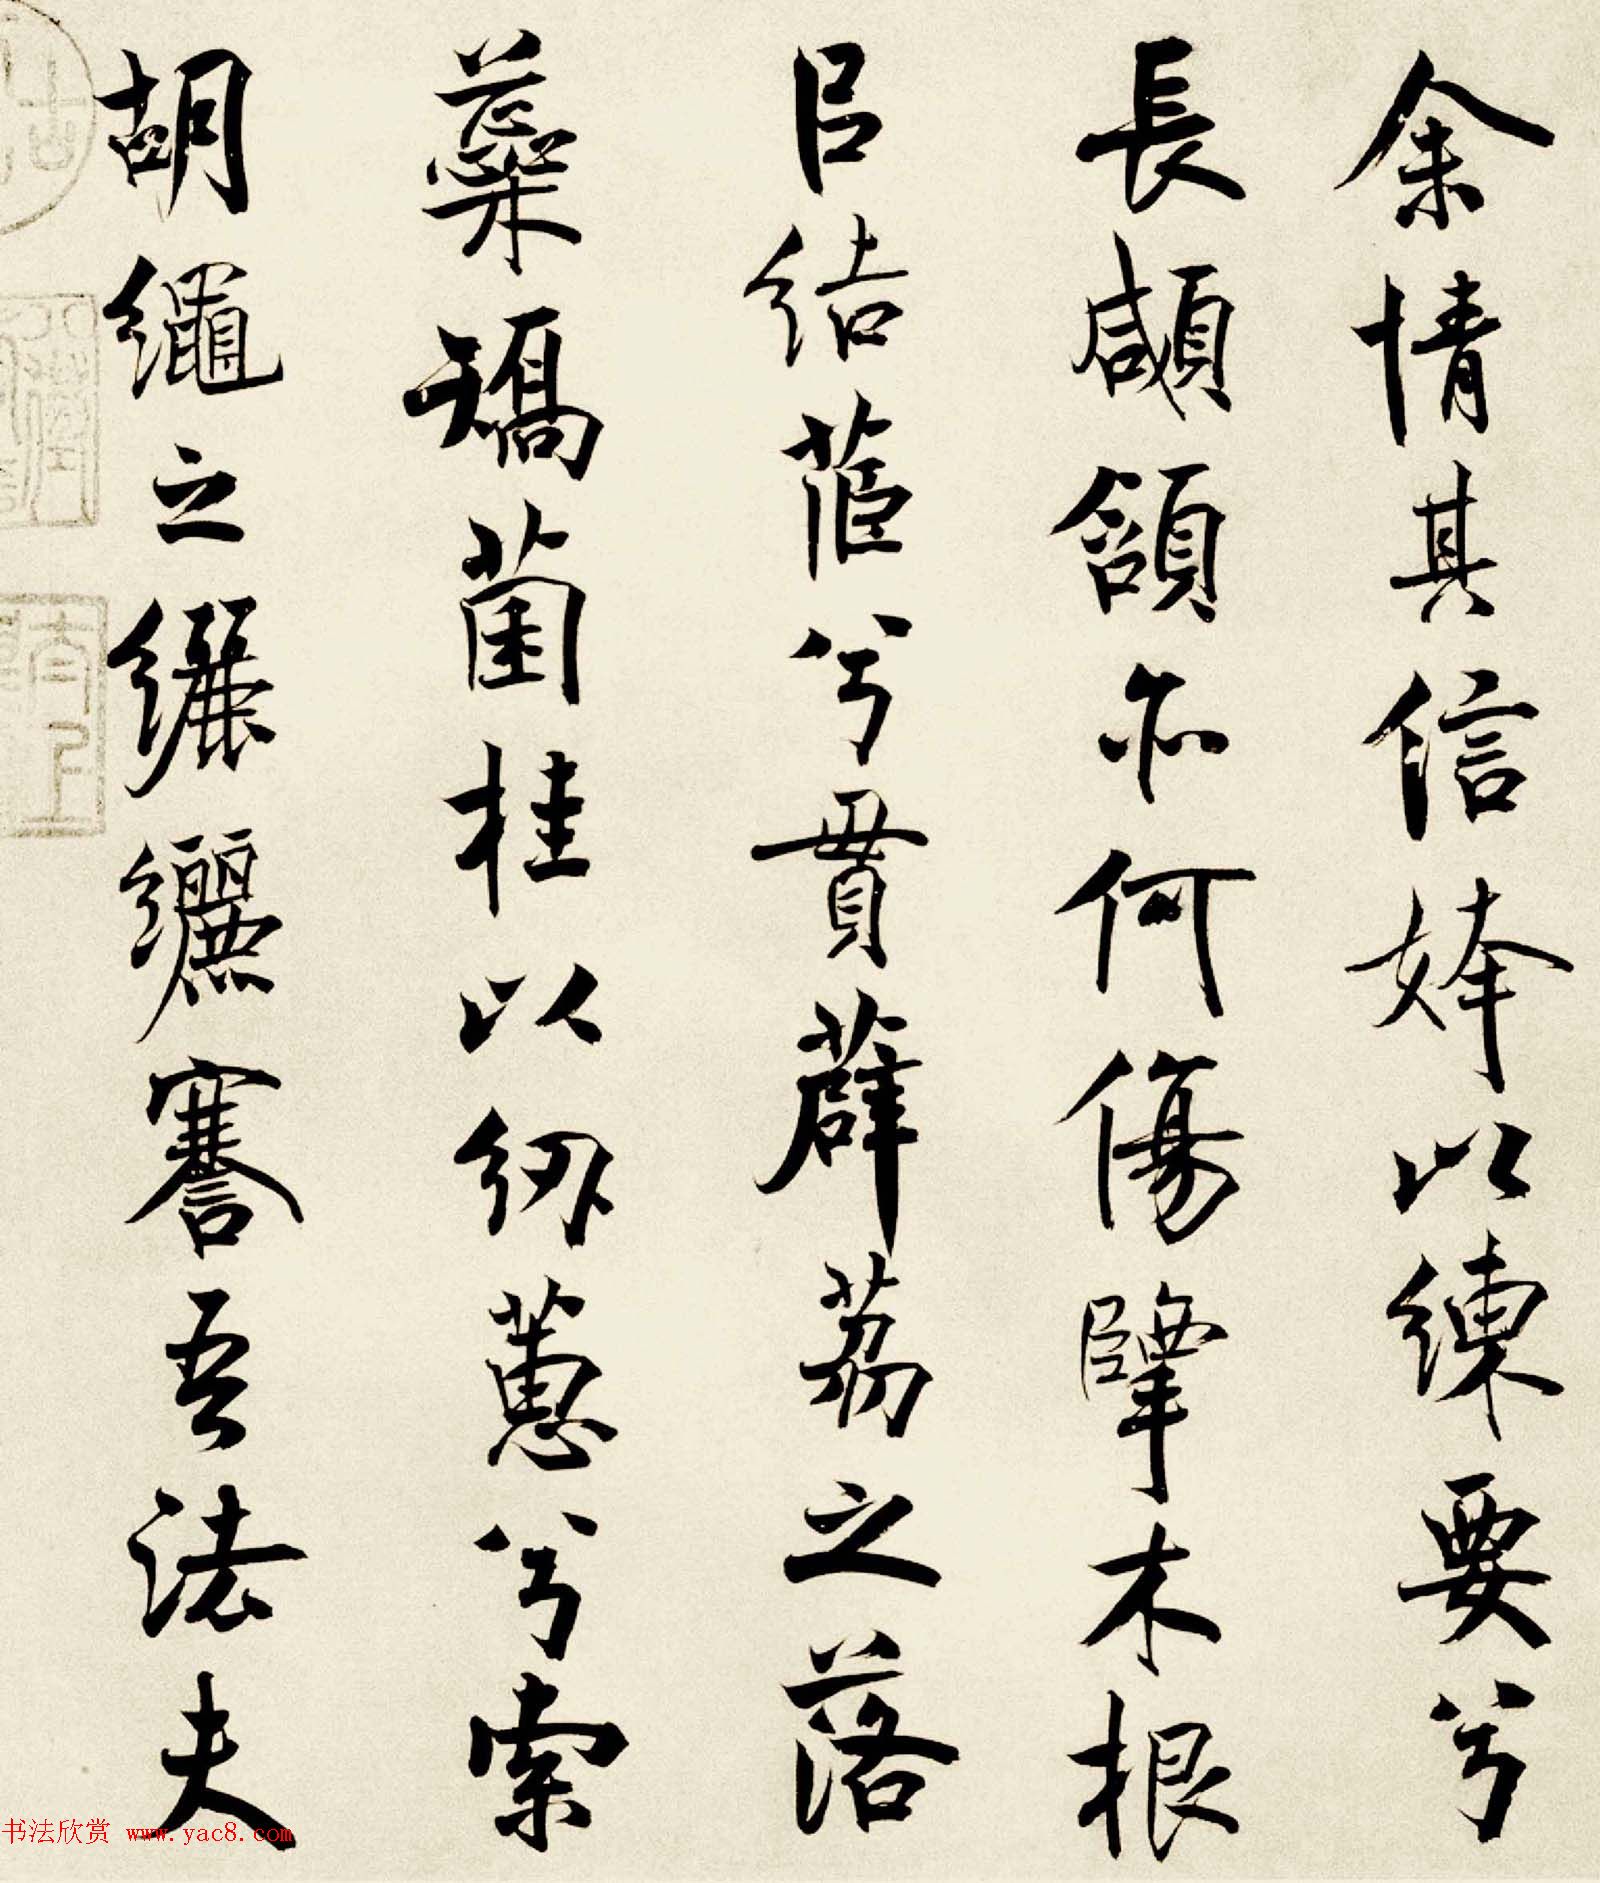 余情其信姱以練要兮
長顑頷亦何傷擥木根
㠯結茝兮貫薜荔之落
蘂矯菌桂以紉蕙兮索
胡繩之纚纚謇吾法夫
书法欣赏 www.yac8.com